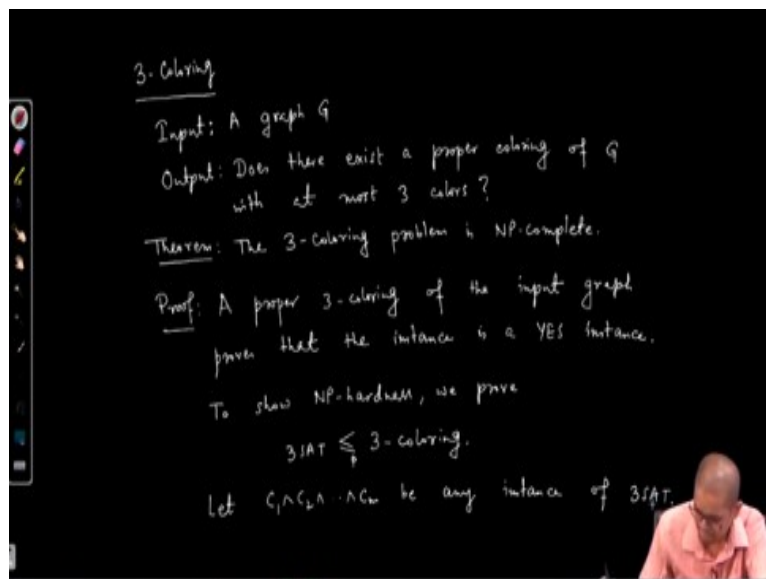 3-Coloring
Input: A graph G
Output: Does there exist a proper coloring of G
with at most 3 colors?
Theorem: The 3-Coloring problem is NP-complete.
Proof: A proper 3-coloring of the input graph
proves that the instance is a YES instance.
To show NP-hardness, we prove
3SAT ≤p 3-coloring.
Let C₁∧C₂∧··∧Cm be any instance of 3SAT.